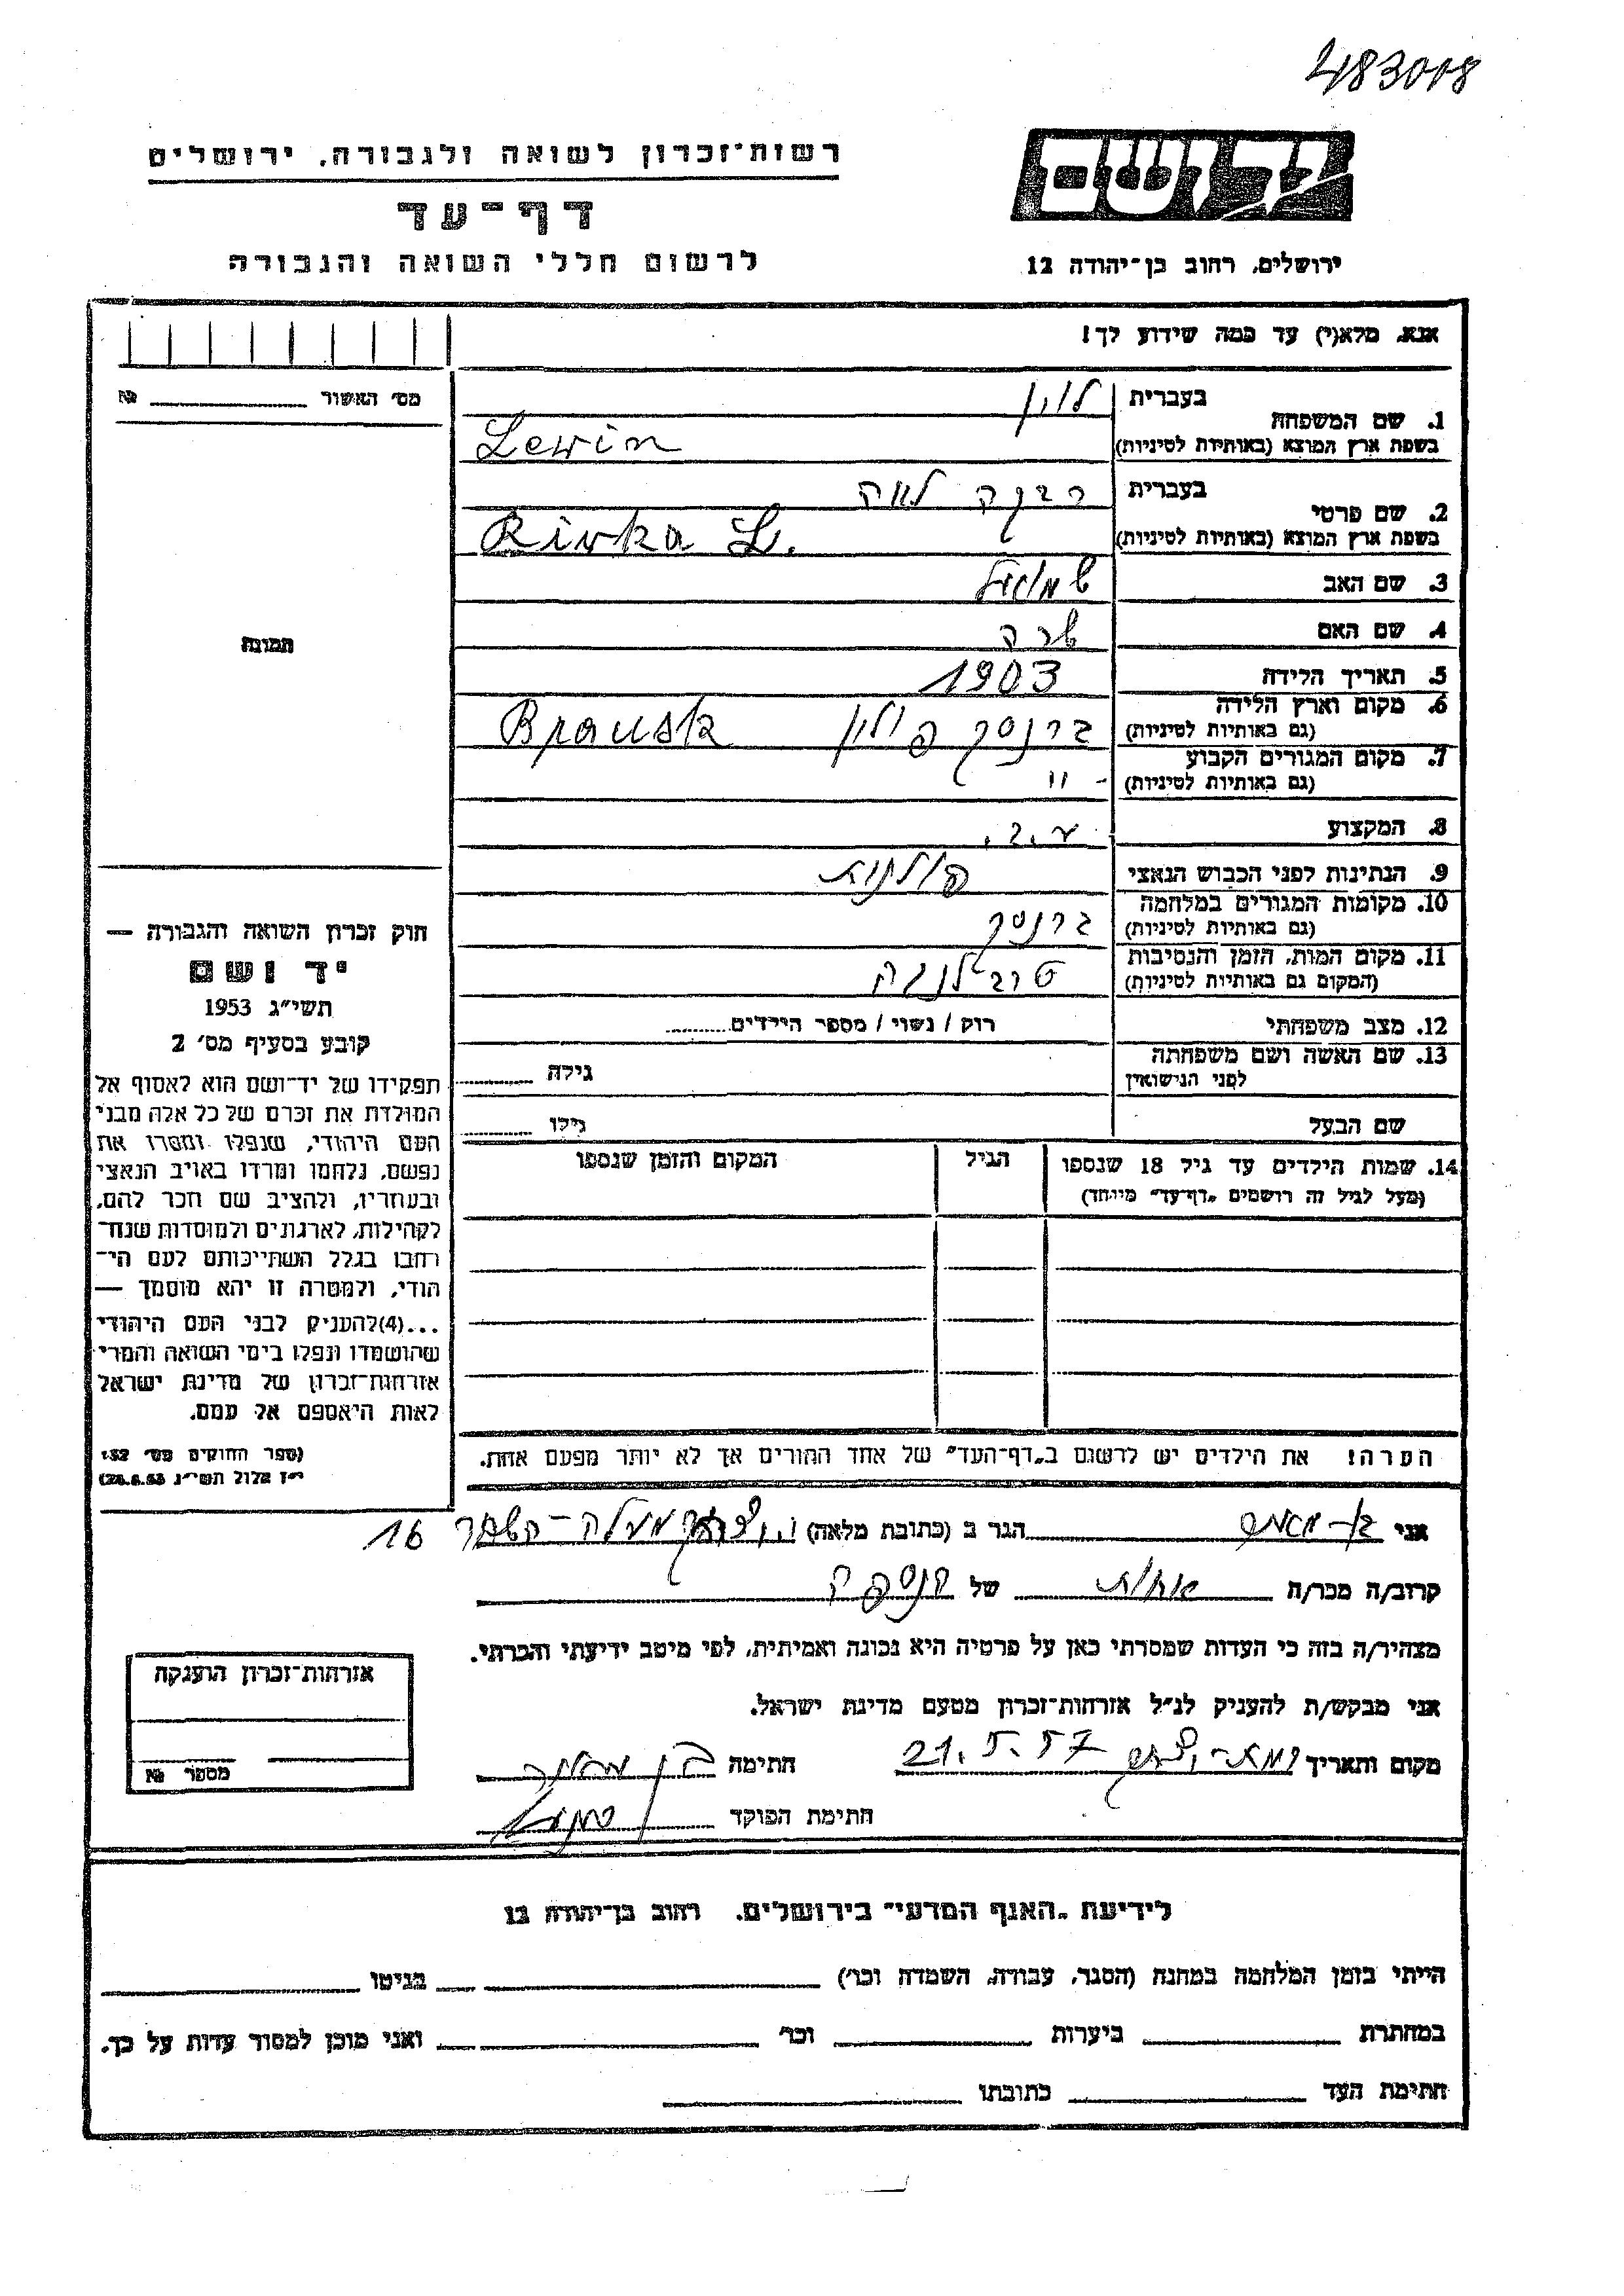 483008
יד ושם
רשות־זכרון לשואה ולגבורה, ירושלים
דף־עד
לרשום חללי השואה והגבורה
ירושלים, רחוב בן־יהודה 12
אנא, מלא(י) עד כמה שידוע לך!
מס׳ האשור № 
1. שם המשפחה בעברית לוין
בשפת ארץ המוצא (באותיות לטיניות) Lewin
2. שם פרטי בעברית רבקה לאה
בשפת ארץ המוצא (באותיות לטיניות) Rivka L.
3. שם האב שמואל
4. שם האם שרה
5. תאריך הלידה 1903
6. מקום וארץ הלידה ברנסק פולין Brausk
(גם באותיות לטיניות)
7. מקום המגורים הקבוע - "
(גם באותיות לטיניות)
8. המקצוע ע.ב.
9. הנתינות לפני הכבוש הנאצי פולנית
10. מקומות המגורים במלחמה ברנסק
(גם באותיות לטיניות)
11. מקום המות, הזמן והנסיבות טרבלנקה
(המקום גם באותיות לטיניות)
12. מצב משפחתי רוק / נשוי / מספר הילדים
13. שם האשה ושם משפחתה גילה
לפני הנישואין
שם הבעל גילו
14. שמות הילדים עד גיל 18 שנספו הגיל המקום והזמן שנספו
(מעל לגיל זה רושמים „דף־עד״ מיוחד)
הערה! את הילדים יש לרשום ב„דף־העד״ של אחד ההורים אך לא יותר מפעם אחת.
תמונה
חוק זכרון השואה והגבורה —
יד ושם
תשי״ג 1953
קובע בסעיף מס׳ 2
תפקידו של יד־ושם הוא לאסוף אל
המולדת את זכרם של כל אלה מבני
העם היהודי, שנפלו ומסרו את
נפשם, נלחמו ומרדו באויב הנאצי
ובעוזריו, ולהציב שם וזכר להם,
לקהילות, לארגונים ולמוסדות שנח־
רבו בגלל השתייכותם לעם הי־
הודי, ולמטרה זו יהא מוסמך —
...(4)להעניק לבני העם היהודי
שהושמדו ונפלו בימי השואה והמרי
אזרחות־זכרון של מדינת ישראל
לאות היאספם אל עמם.
(ספר החוקים מס׳ 132,
י״ז אלול תשי״ג 28.8.53)
אני בן-מאיר הגר ב (כתובת מלאה) מעלה-השחר 16
קרוב/ה מכר/ה אחות של הנספה
מצהיר/ה בזה כי העדות שמסרתי כאן על פרטיה היא נכונה ואמיתית, לפי מיטב ידיעתי והכרתי.
אני מבקש/ת להעניק לנ״ל אזרחות־זכרון מטעם מדינת ישראל.
מקום ותאריך 21.5.57 חתימה
חתימת הפוקד
אזרחות־זכרון הוענקה
מספר №
לידיעת „האגף המדעי״ בירושלים, רחוב בן־יהודה 12
הייתי בזמן המלחמה במחנה (הסגר, עבודה, השמדה וכו׳) בגיטו
במחתרת ביערות וכו׳ ואני מוכן למסור עדות על כך.
חתימת העד כתובתו